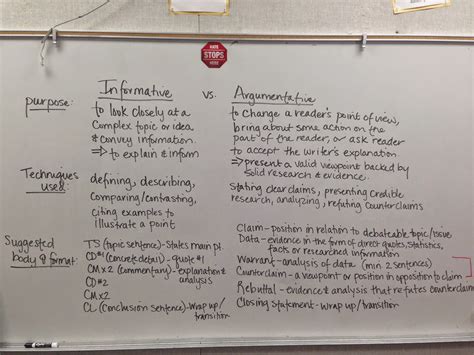 HATE
STOPS
HERE
Informative vs. Argumentative
purpose:
to look closely at a
complex topic or idea
& convey information
⇒ to explain & inform
to change a reader's point of view,
bring about some action on the
part of the reader, or ask reader
to accept the writer's explanation.
⇒ present a valid viewpoint backed by
solid research & evidence.
Techniques
used:
defining, describing,
comparing/contrasting,
citing examples to
illustrate a point
stating clear claims, presenting credible
research, analyzing, refuting counterclaims
Suggested
body ¶ format:
TS (topic sentence)-States main pt.
CD#1 (concrete detail)-quote #1
CMx2 (commentary)-explanation &
analysis
CD#2
CMX2
CL (Conclusion sentence)-wrap up/
transition
Claim-position in relation to debateable topic/issue
Data-evidence in the form of direct quotes, statistics,
facts or researched information
Warrant-analysis of data (min. 2 sentences)
Counterclaim-a viewpoint or position in opposition to claim
Rebuttal-evidence & analysis that refutes counterclaim
Closing statement-wrap up/transition